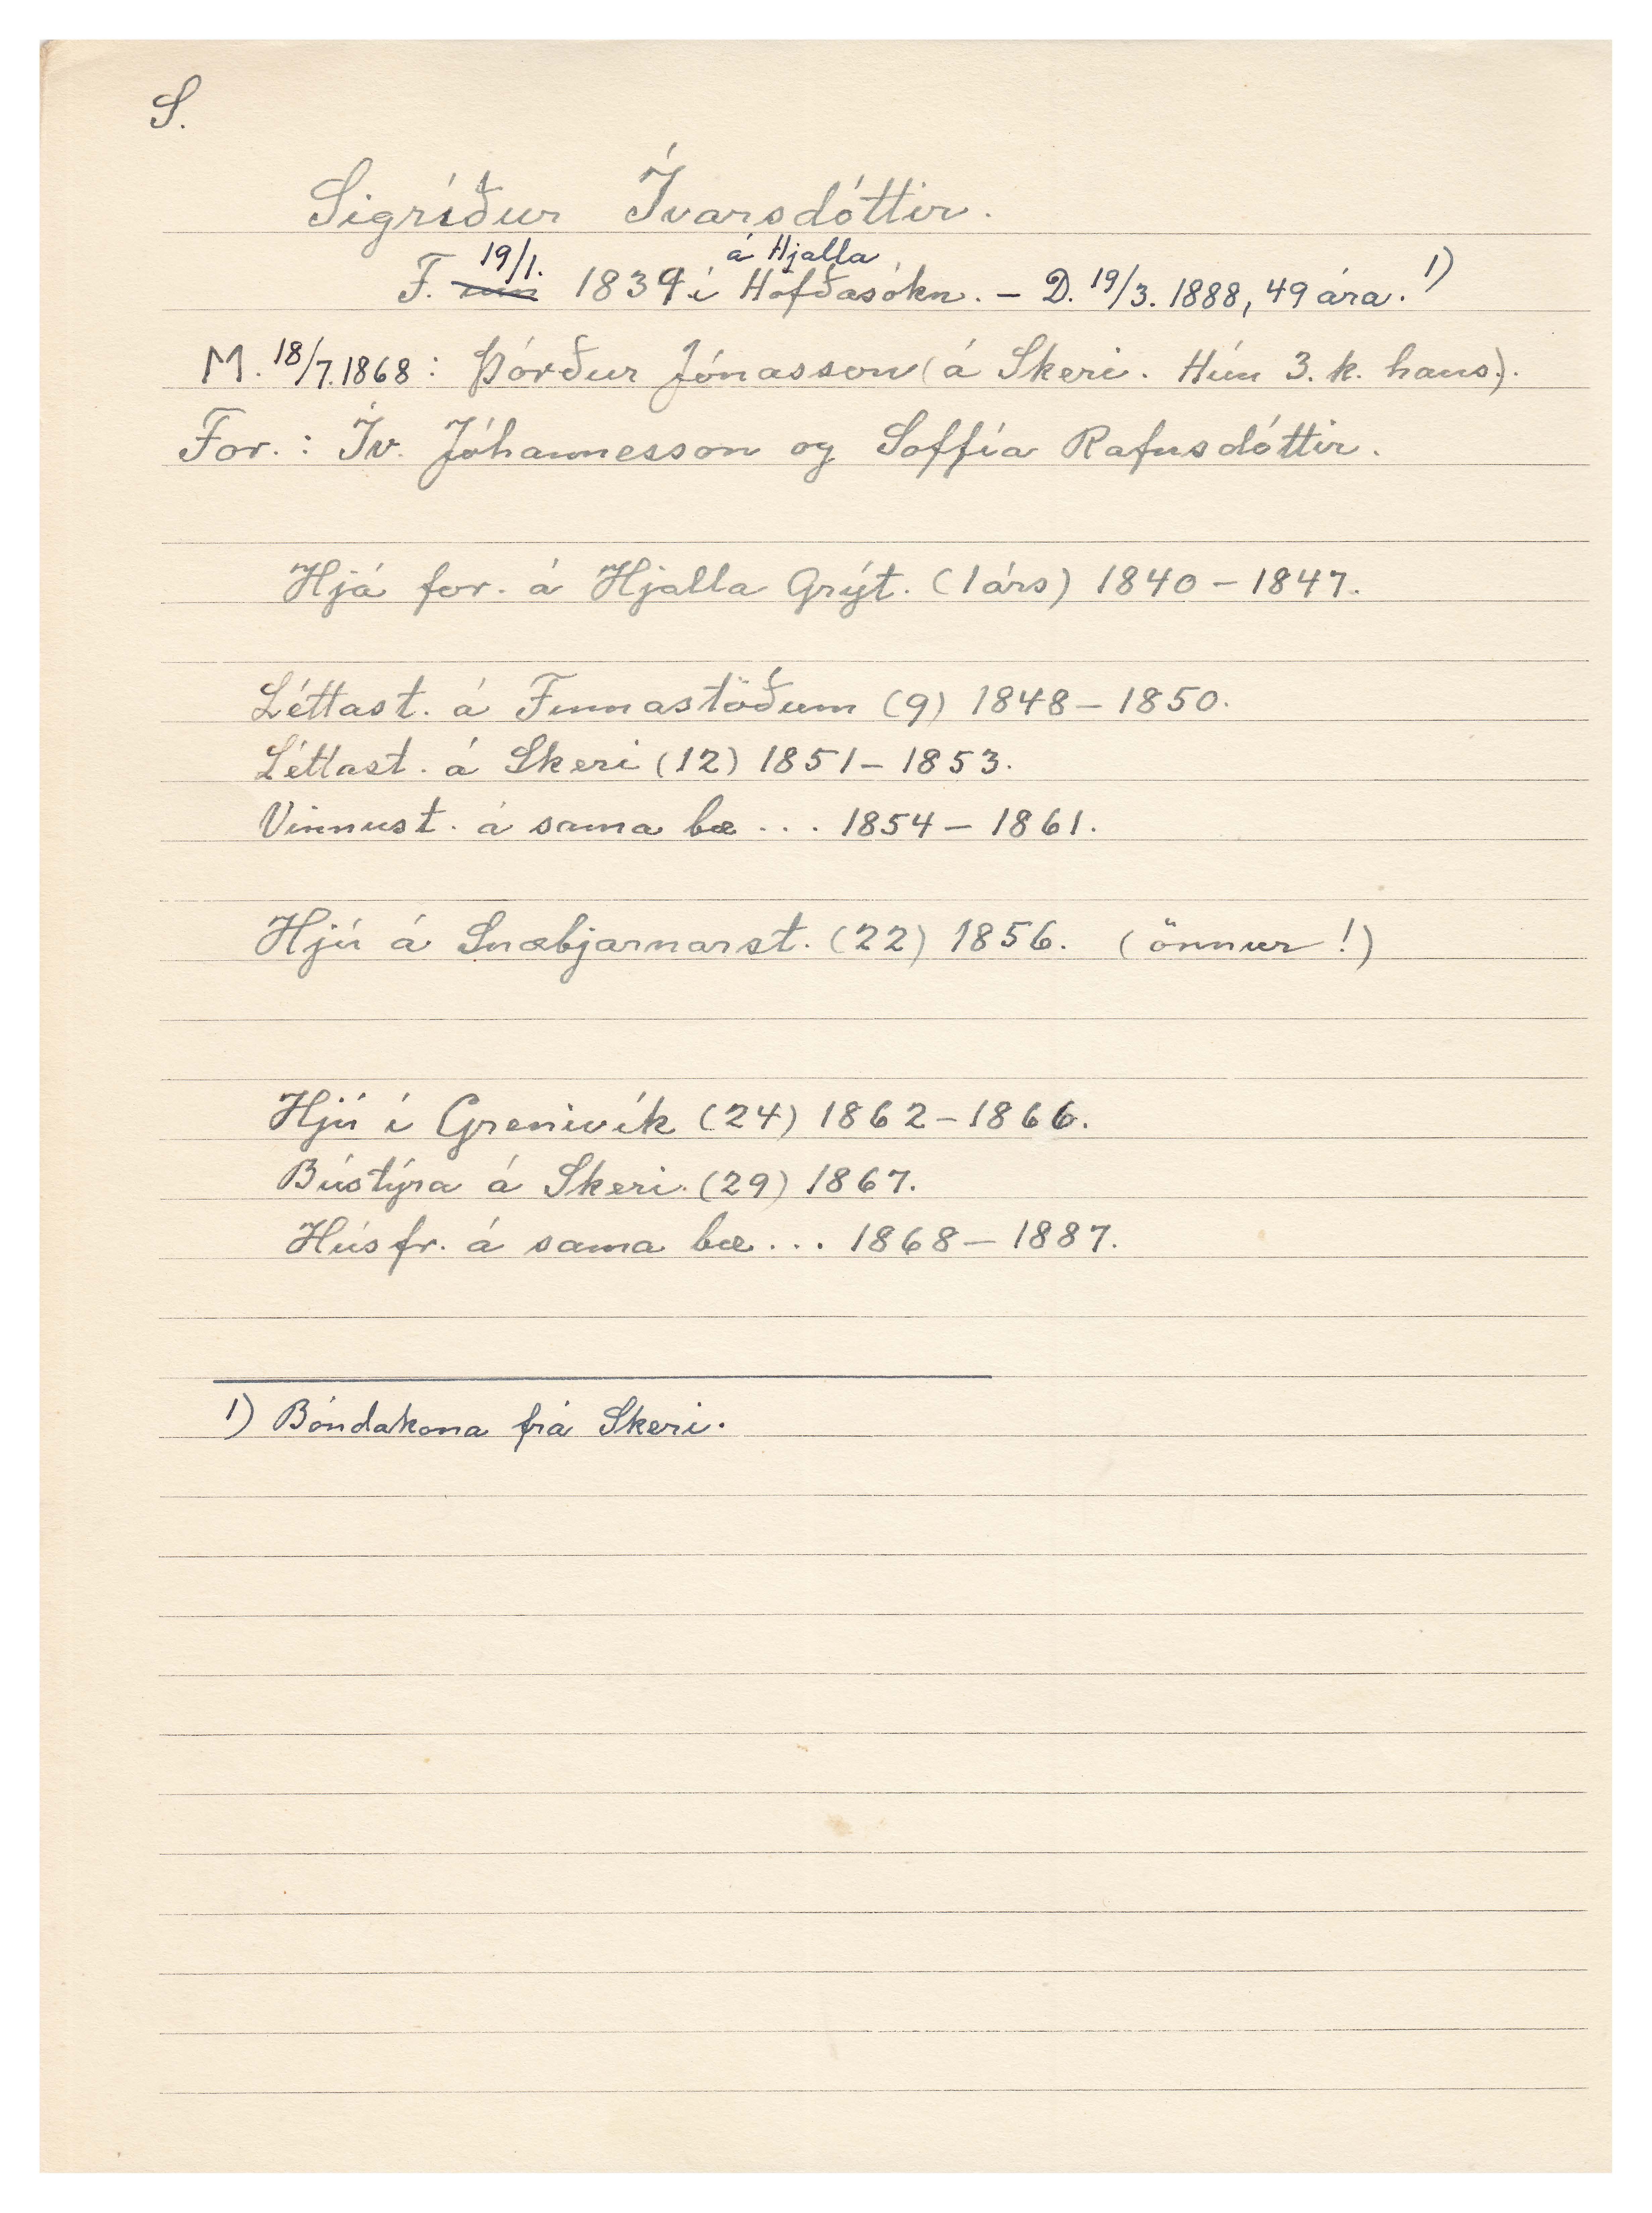 S.
Sigríður Ívarsdóttir.
19/1. á Hjalla
F. 1839 í Höfðasókn. – D. 19/3. 1888, 49 ára. 1)
M. 18/7. 1868: Þórður Jónasson (á Skeri. Hún 3. k. hans).
For.: Ív. Jóhannesson og Soffía Rafnsdóttir.
Hjá for. á Hjalla Grýt. (1 árs) 1840 – 1847.
Léttast. á Finnastöðum (9) 1848 – 1850.
Léttast. á Skeri (12) 1851 – 1853.
Vinnust. á sama bæ ... 1854 – 1861.
Hjú á Snæbjarnarst. (22) 1856. (önnur!)
Hjú í Grenivík (24) 1862 – 1866.
Bústýra á Skeri. (29) 1867.
Húsfr. á sama bæ ... 1868 – 1887.
1) Bóndakona frá Skeri.